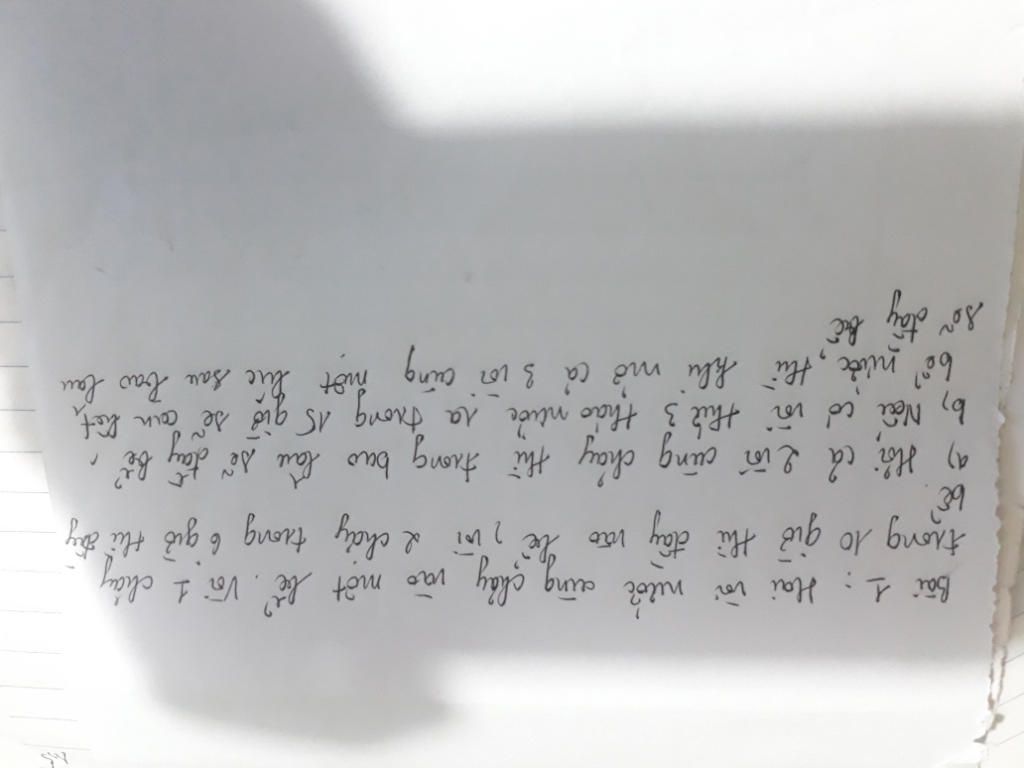 Bài 1: Hai vòi nước cùng chảy vào một bể. Vòi 1 chảy
trong 10 giờ thì đầy vào bể, vòi 2 chảy trong 6 giờ thì đầy
bể.
a) Hỏi cả 2 vòi cùng chảy thì trong bao lâu sẽ đầy bể
b, Nếu có vòi thứ 3 tháo nước ra trong 15 giờ sẽ cạn hết
bể nước, thì khi mở cả 3 vòi cùng một lúc sau bao lâu
sẽ đầy bể,